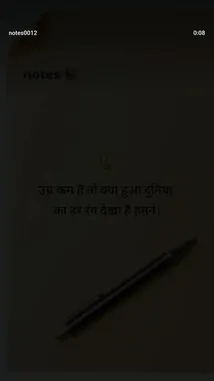 notes0012
0:08
notes
उम्र कम है तो क्या हुआ दुनिया
का हर रंग देखा है हमने।